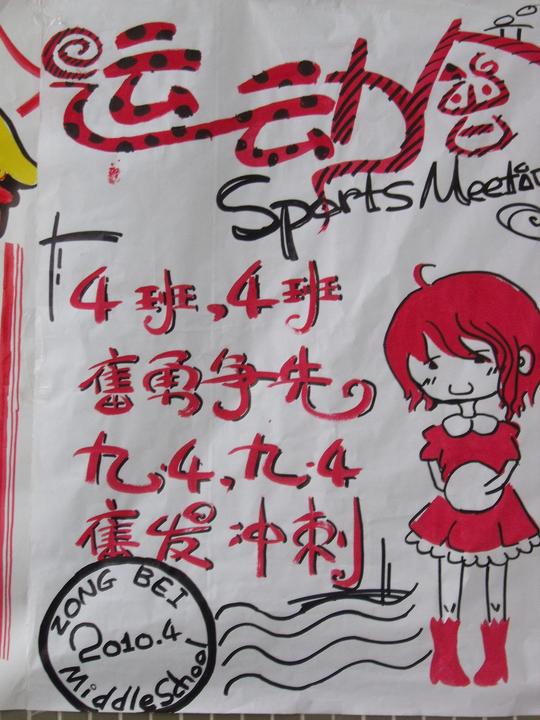 运动会
Sports Meeting
4班,4班
奮勇争先
九.4,九.4
奮发冲刺
ZONG BEI
2010.4
Middle School